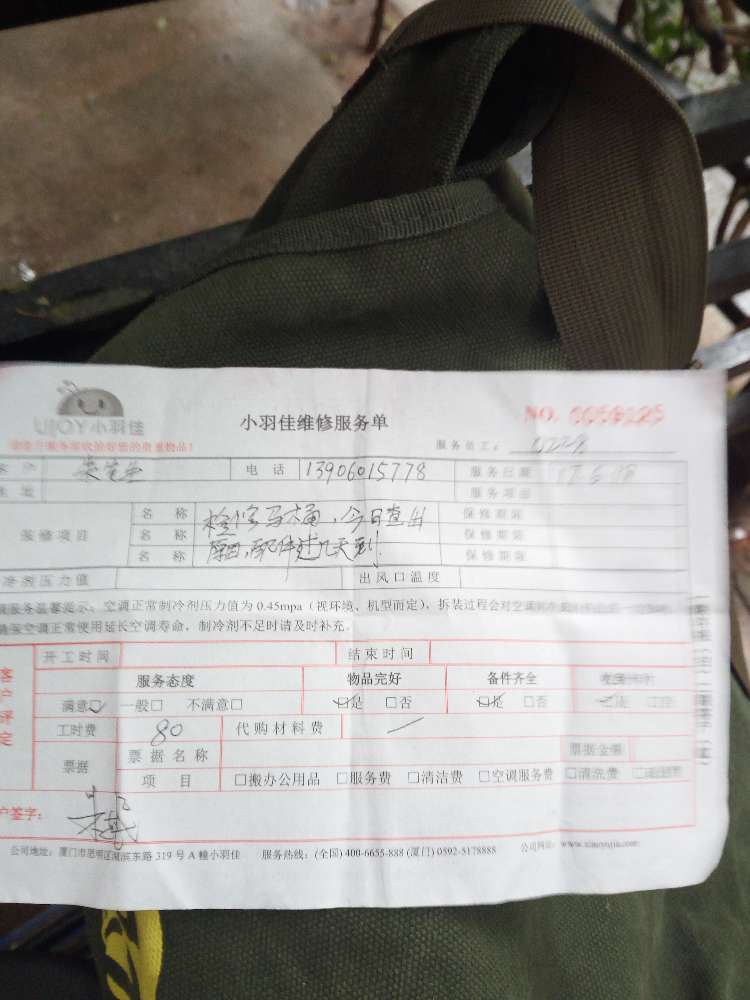 UJOY小羽佳
小羽佳维修服务单
NO. 0050125
服务员工: 0228
电话 13906015778 服务日期 17.6.18
服务项目
装修项目
名称 检修马桶,今日查出 保修期限
名称 保修期限
名称 配件过几天到. 保修期限
冷剂压力值 出风口温度
服务温馨提示:空调正常制冷剂压力值为 0.45mpa(视环境、机型而定),拆装过程会对空调制
确保空调正常使用延长空调寿命,制冷剂不足时请及时补充。
开工时间 结束时间
客户评定
服务态度 物品完好 备件齐全
满意☑ 一般□ 不满意□ ☑是 □否 ☑是 □否 是
工时费 80 代购材料费 /
票据 票据名称 票据金额
项目 □搬办公用品 □服务费 □清洁费 □空调服务费 □清洗费
户签字:
公司地址:厦门市思明区湖滨东路 319 号 A 幢小羽佳 服务热线:(全国) 400-6655-888 (厦门) 0592-5178888 公司网址: www.xiaoyujia.com